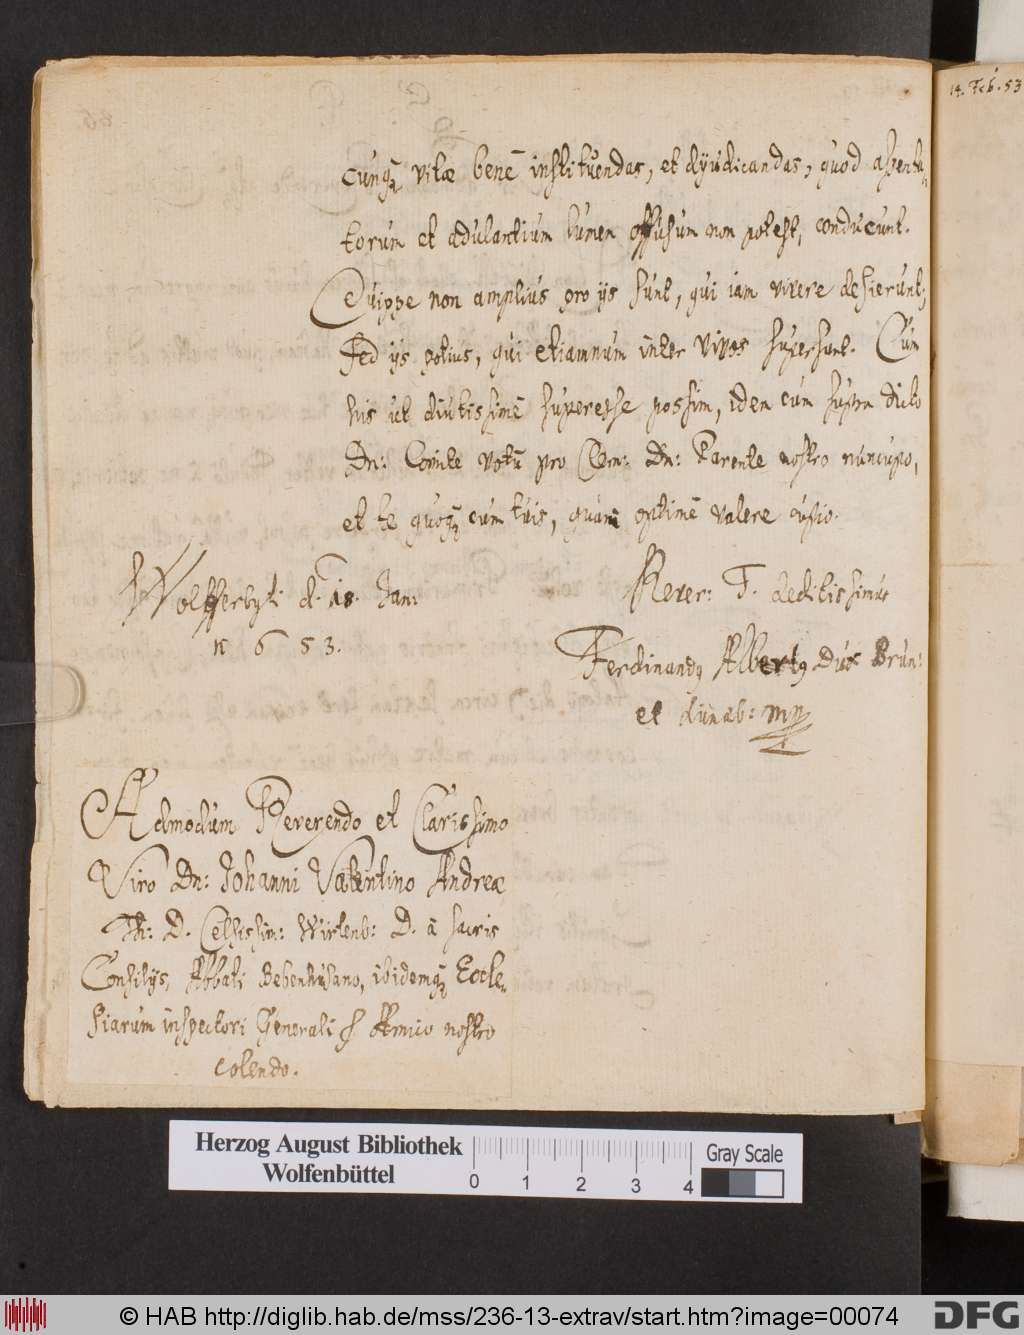 14. Feb. 53
cunq₃ vitæ benè instituendas, et dijudicandas, quod assenta-
torum et adulantium lumen offusum non potest, conducunt.
Quippe non amplius pro ijs sunt, qui iam vivere desierunt,
sed ijs potius, qui etiamnum inter vivos supersunt. Cum
his ut diutissimè superesse possim, idem cum supra dicto
Dn: Comite votū pro Clem: Dn: Parente nostro nuncupo,
et te quoq₃ cum tuis, quàm optimè valere cupio.
Wolfferbyt: d. 18. Jan:
1653.
Rever: T. deditissimus
Ferdinandꝰ Albertꝰ Dux Brun:
et Lunæb: mp
Admodum Reverendo et Clarissimo
Viro Dn: Johanni Valentino Andreæ
Th: D. Celsissim: Wirtenb: D. à sacris
Consilijs, Abbati Bebenhusano, ibidemq₃ Eccle-
siarum inspectori Generali Amico nostro
colendo.
Herzog August Bibliothek
Wolfenbüttel
0 1 2 3 4
Gray Scale
© HAB http://diglib.hab.de/mss/236-13-extrav/start.htm?image=00074
DFG